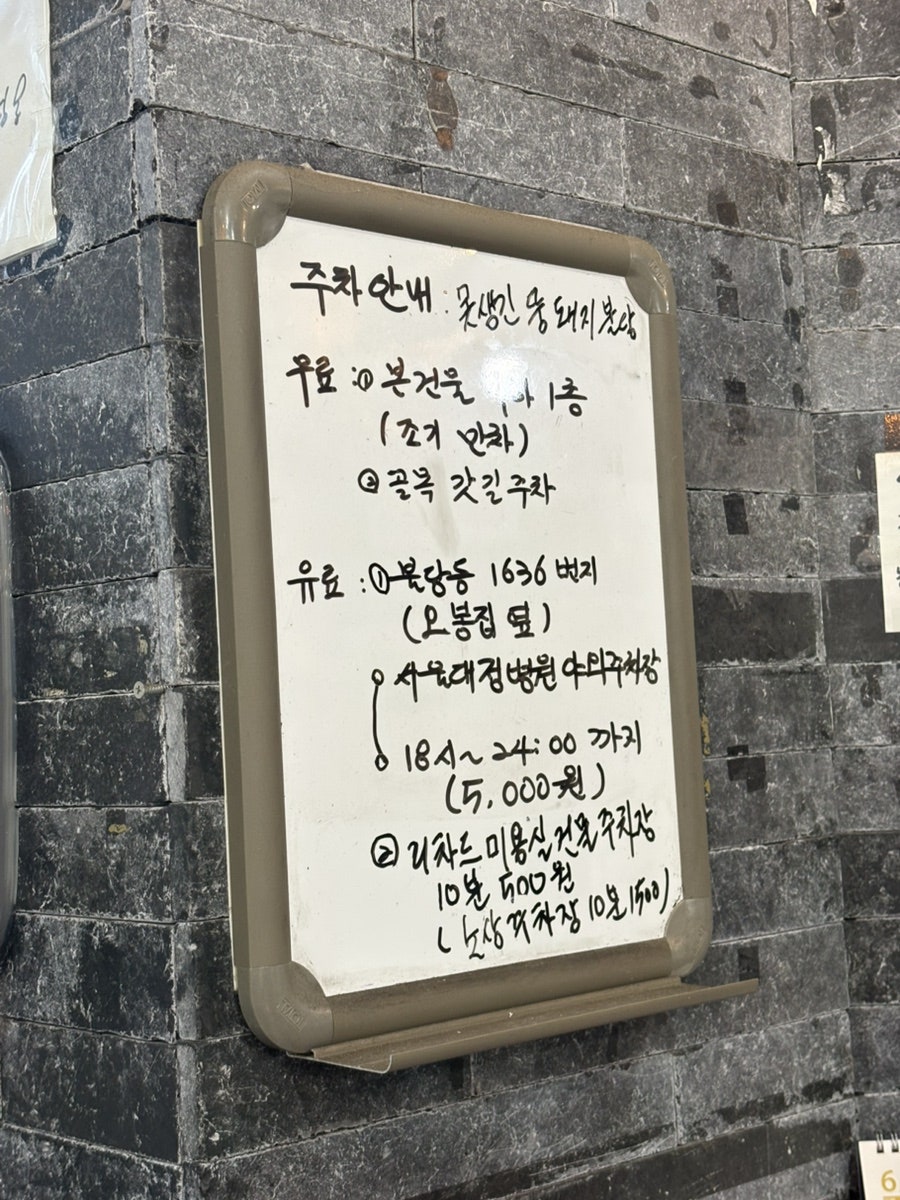 주차안내 : 못생긴 뚱돼지분당
무료 : ① 본건물 지하 1층
(조기 만차)
② 골목 갓길 주차
유료 : ① 분당동 1636 번지
(오봉집 옆)
서울대정병원 야외주차장
18시~24:00 까지
(5,000원)
② 리차드 미용실 건물 주차장
10분 500원
(노상주차장 10분 1500)
6